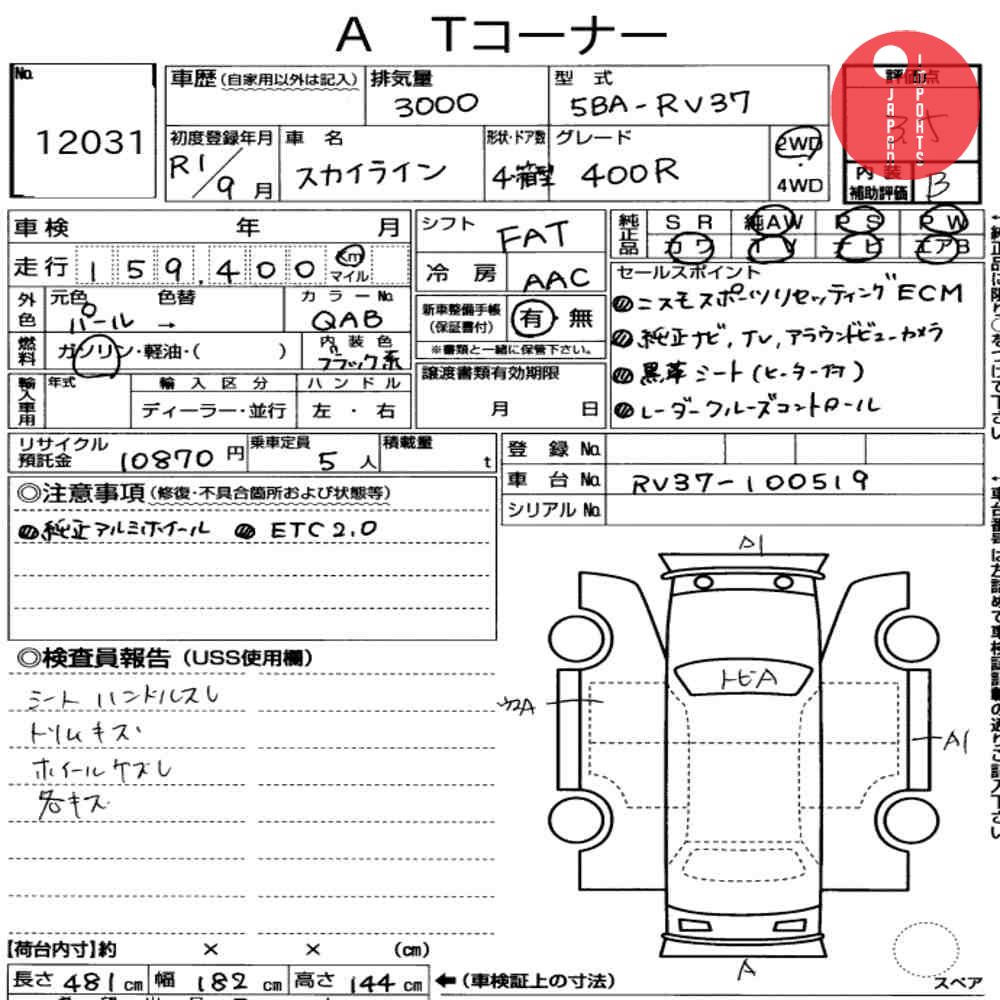 A Tコーナー
No.
12031
車歴 (自家用以外は記入)
排気量
3000
型式
5BA-RV37
評価点
3.5
JAPAN
IMPORTS
初度登録年月
R1/9月
車名
スカイライン
形状・ドア数
4・箱型
グレード
400R
2WD
・
4WD
内装
補助評価
B
車検 年 月
走行 159,400 Km マイル
外色
元色 色替
パール →
カラーNo.
QAB
燃料
ガソリン・軽油・( )
内装色
ブラック系
輸入車用
年式
輸入区分
ディーラー・並行
ハンドル
左・右
シフト
FAT
冷房
AAC
新車整備手帳
(保証書付)
有・無
※書類と一緒に保管下さい。
譲渡書類有効期限
月 日
純正品
SR 純AW PS PW
カワ TV ナビ エアB
セールスポイント
ニスモスポーツリセッティングECM
純正ナビ, TV, アラウンドビューカメラ
黒革シート(ヒーター付)
レーダークルーズコントロール
←純正品に限り○をつけて下さい
リサイクル
預託金
10870円
乗車定員
5人
積載量
t
登録No.
車台No.
RV37-100519
シリアルNo.
←車台番号は左詰めで車検証記載の通りご記入下さい
◎注意事項(修復・不具合箇所および状態等)
純正アルミホイール ETC2.0
◎検査員報告(USS使用欄)
シートハンドルスレ
トリムキズ
ホイールケズレ
各キズ
A1
トビA
A1
A
スペア
【荷台内寸】約 × × (cm)
長さ 481cm 幅 182cm 高さ 144cm
←(車検証上の寸法)